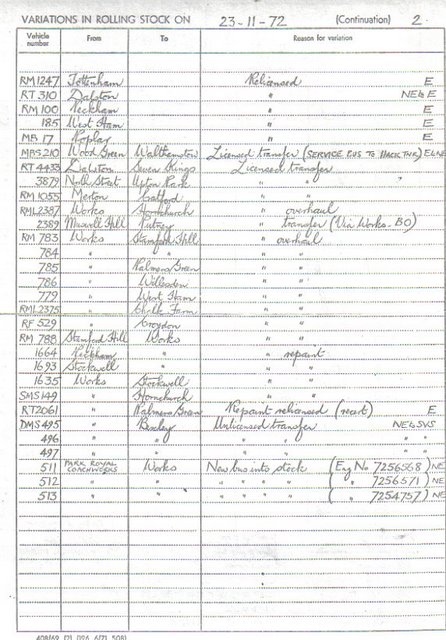 VARIATIONS IN ROLLING STOCK ON 23-11-72 (Continuation) 2
Vehicle number From To Reason for variation
RM1247 Tottenham Relicensed E
RT 310 Dalston " NE to E
RM 100 Peckham " E
185 West Ham " E
MB 17 Poplar " E
MBS 210 Wood Green Walthamstow Licensed transfer (SERVICE BUS TO
RT 4433 Dalston Seven Kings Licensed transfer
3879 North Street Upton Park " " "
RM 1055 Merton Catford " "
RML2387 Works Hornchurch " overhaul
2389 Muswell Hill Putney " transfer (Via Works - BO)
RM 783 Works Stamford Hill " overhaul
784 " " " "
785 " Palmers Green " "
786 " Willesden " "
779 " West Ham " "
RML2375 " Chalk Farm " "
RF 529 " Croydon " "
RM 788 Stamford Hill Works " "
1664 Peckham " " repaint
1693 Stockwell " " "
1635 Works Stockwell " "
SMS149 " Hornchurch " "
RT2061 " Palmers Green Repaint relicensed E
DMS495 " Bexley Unlicensed transfer NE to SVS
496 " " " " " "
497 " " " " " "
511 PARK ROYAL COACHWORKS Works New bus into stock (Eng No 7256568) NE
512 " " " " " " ( " 7256571) NE
513 " " " " " " ( " 7254757) NE